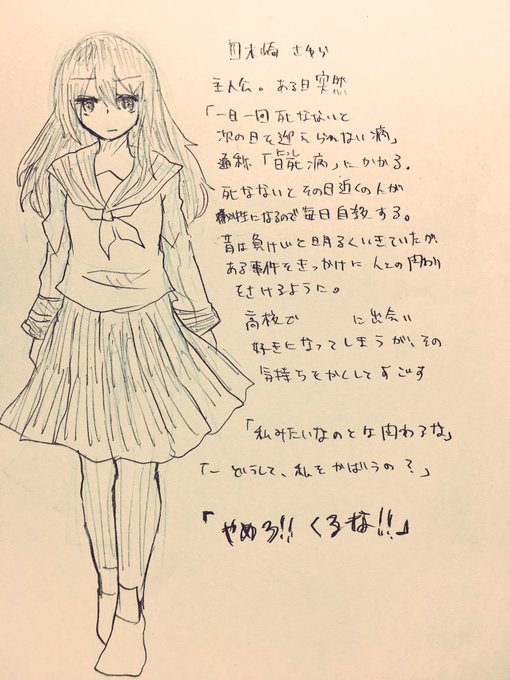 木崎
主人公。ある日突然
「一日一回死なないと
次の日を迎えられない病」
通称「病」にかかる。
死なないとその日近くの人が
犠牲になるので毎日自殺する。
昔は明るくいきていたが
ある事件をきっかけに人との関わり
をさけるように。
高校で に出会い
好きになってしまうが、その
気持ちをかくしてすごす
「私みたいなのとは関わるな」
「…どうして、私をかばうの?」
「やめろ!! くるな!!」